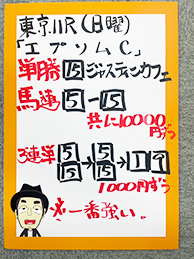 東京11R(日曜)
「エプソムC」
単勝 15 ジャスティンカフェ
馬連 5-15
共に10000円ずつ
3連単 5/15→5/15→1 9
1000円ずつ
一番強い。